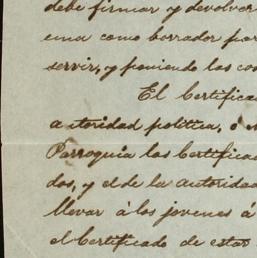 debe firmar y devolver
una como borrador par
servir, y poniendo las cos
El Certifica
autoridad política, ó e
Parroquia las Certifica
dos, y el de la autoridad
llevar á los jovenes á
el Certificado de estar